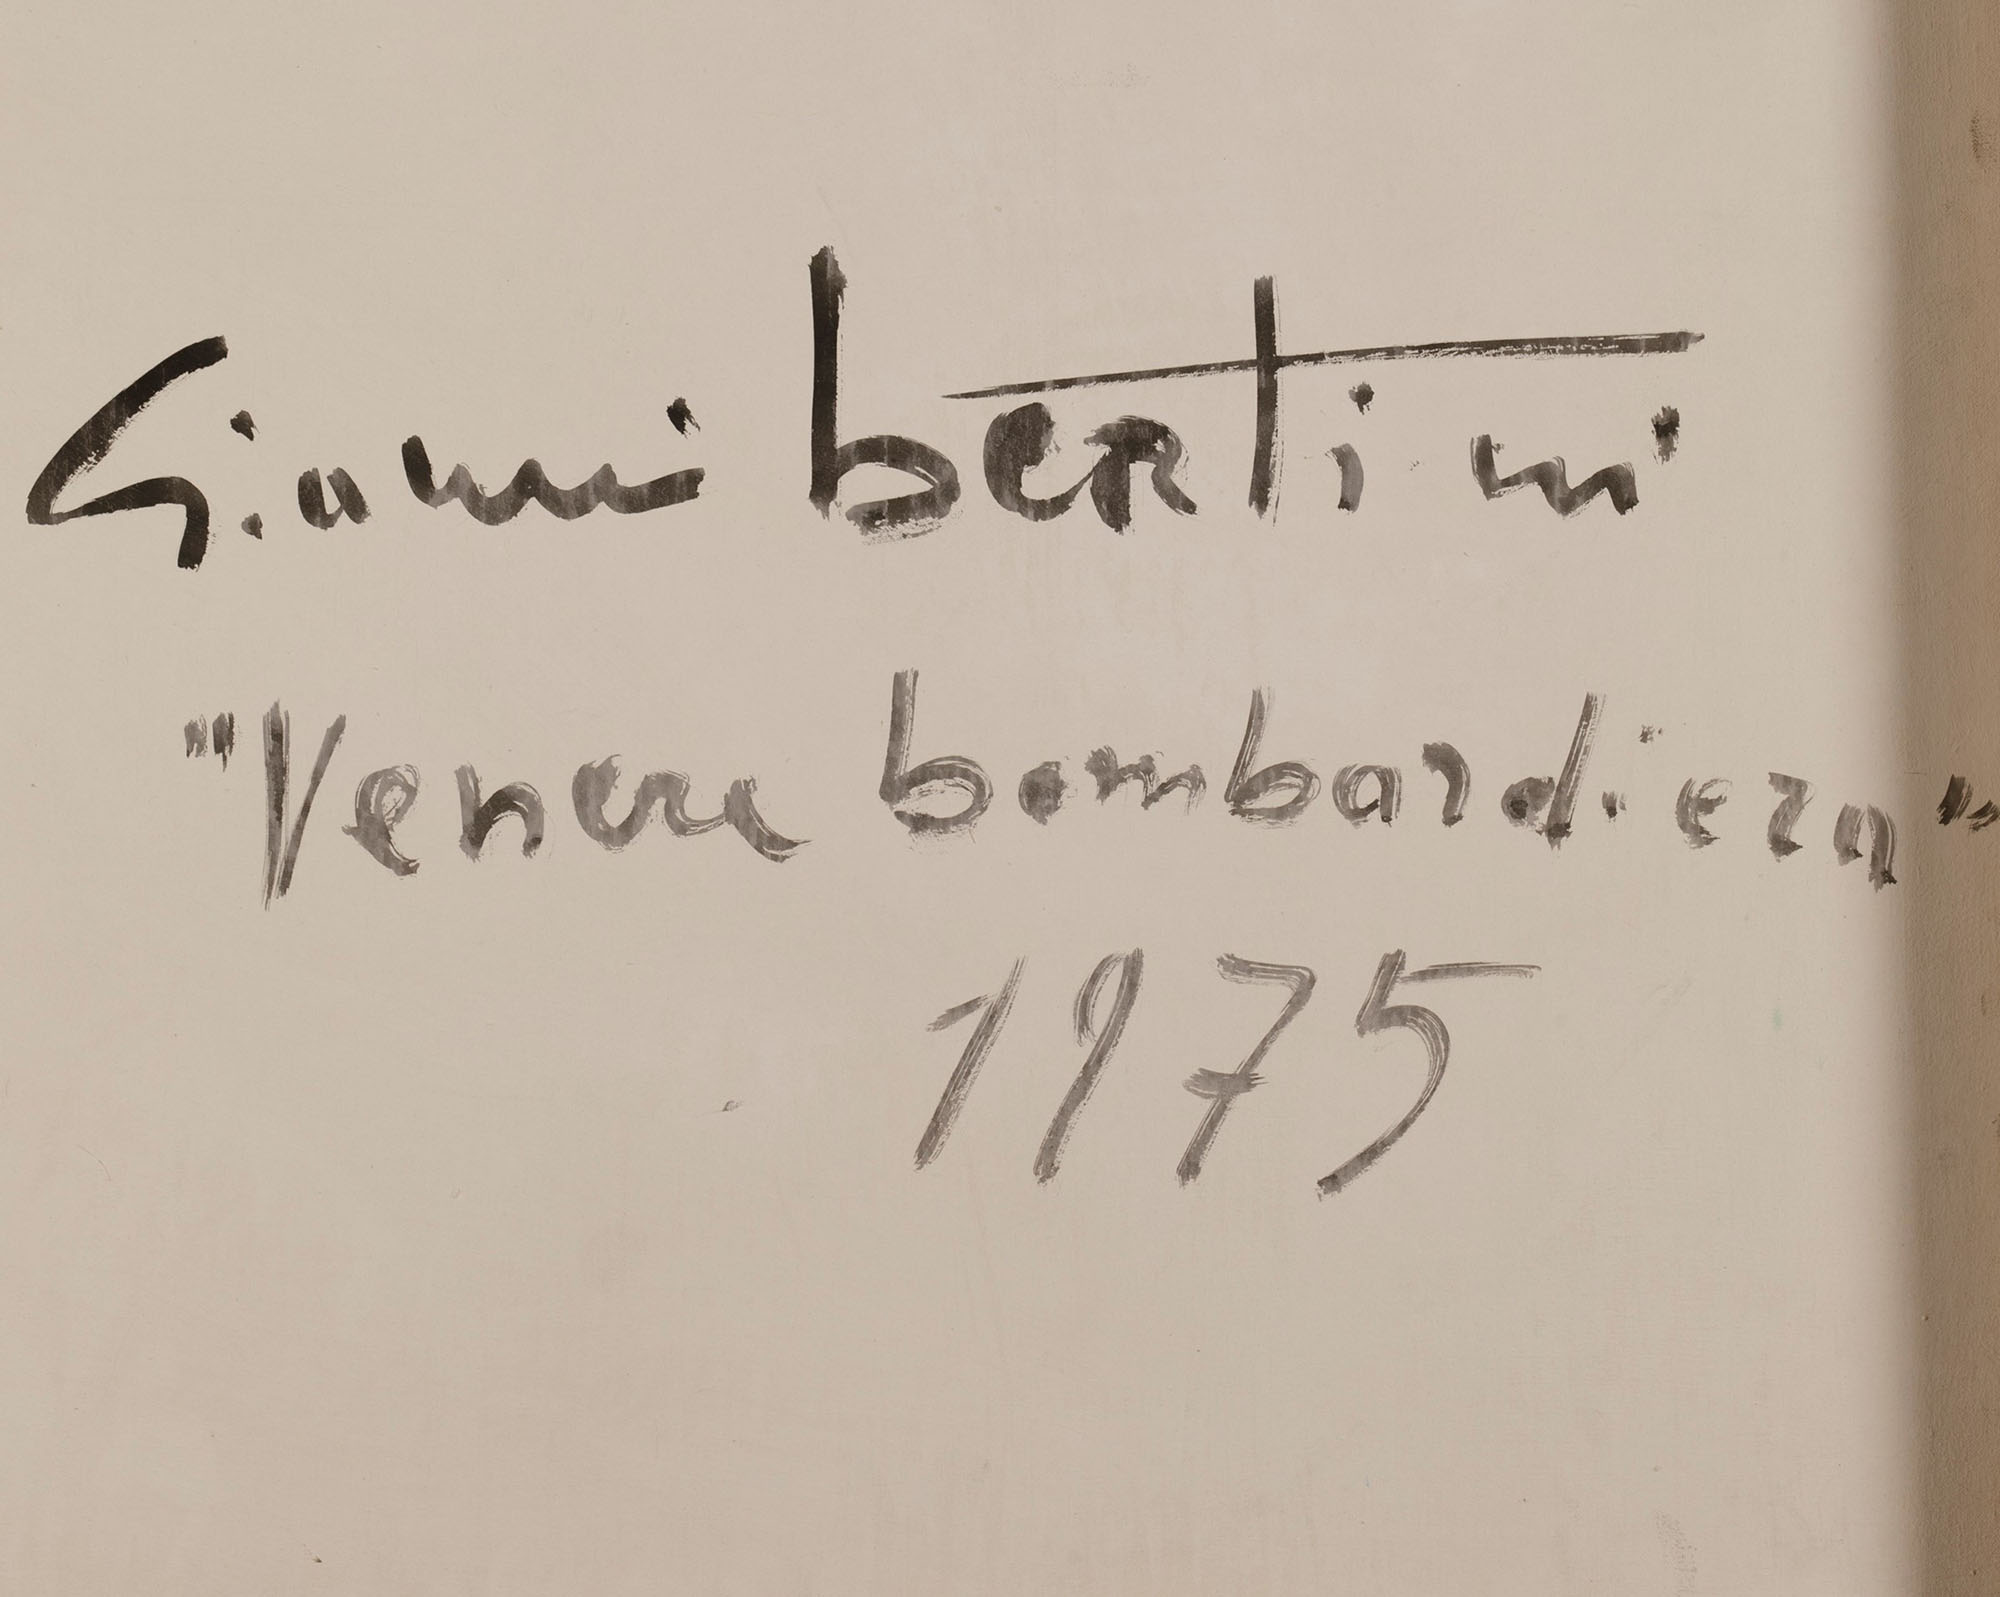 Gianni bertini
"Venere bombardiera"
1975